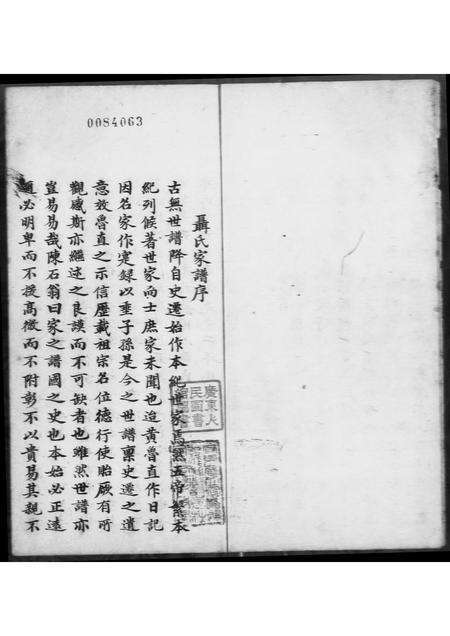 0084063
聶氏家譜序
古無世譜降自史遷始作本紀世家焉然五帝繫本
紀列候著世家而士庶家未聞也迨黃魯直作日記
因名家作寔録以垂子孫是今之世譜稟史遷之遺
意效魯直之示信歷載祖宗名位德行使胎厥有所
觀感斯亦繼述之良謨而不可缺者也雖然世譜亦
豈易易哉陳石翁曰家之譜國之史也本始必正遠
邇必明卑而不援高微而不附彰不以貴易其親不
廣東人
民圖書